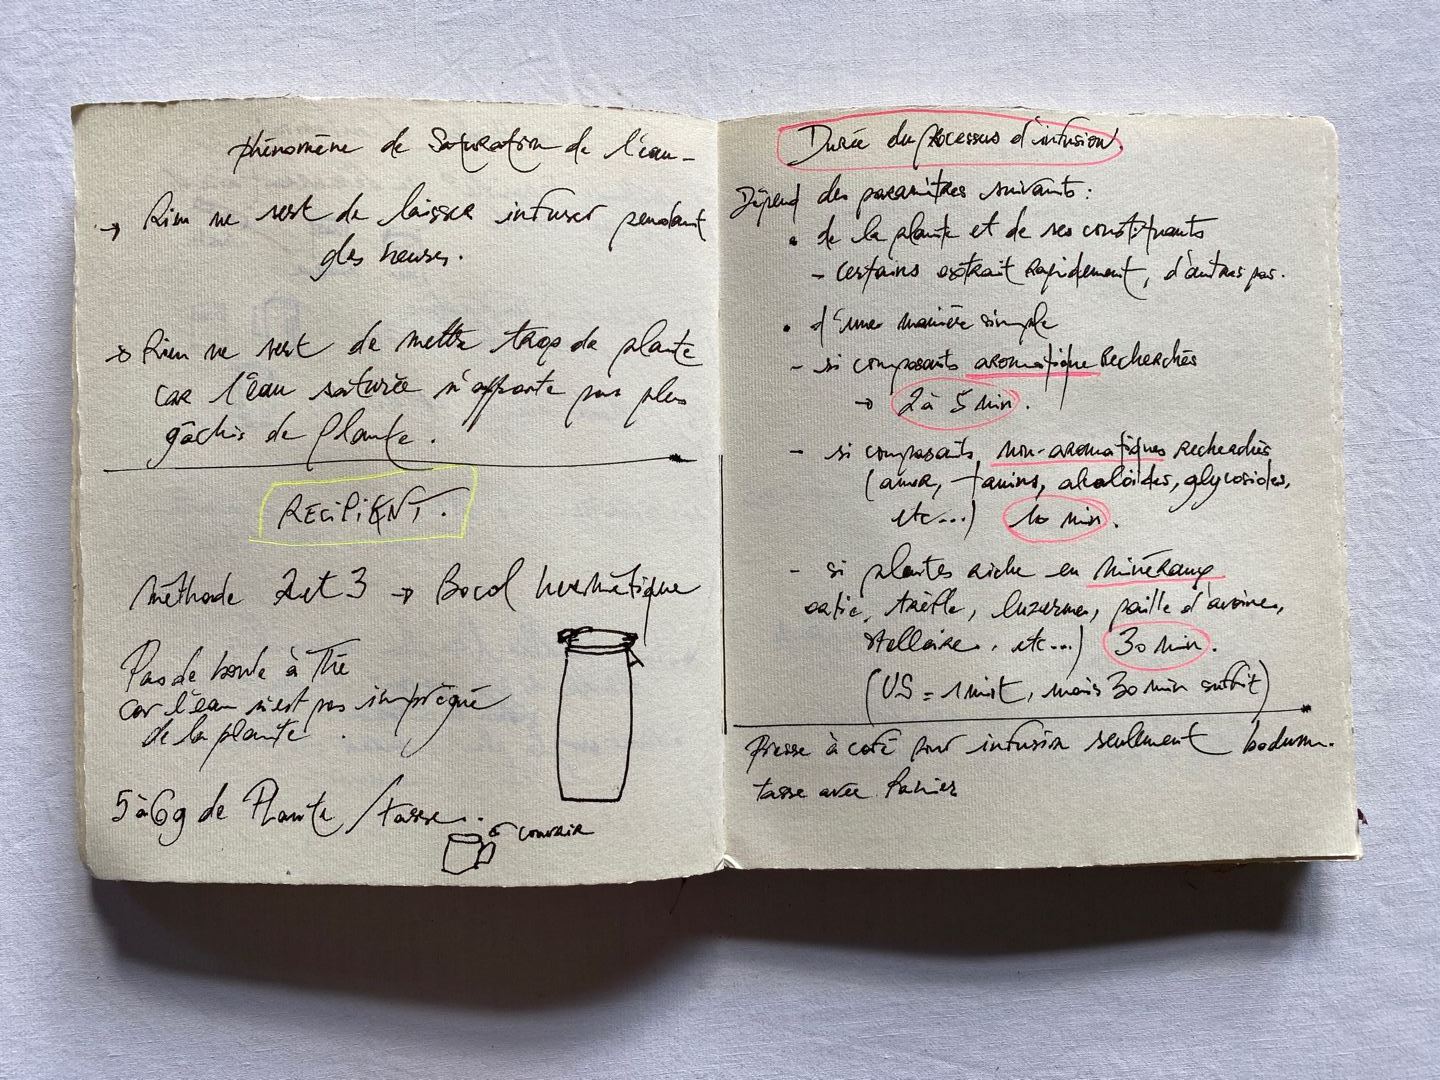 phénomène de Saturation de l'eau -
→ Rien ne sert de laisser infuser pendant
des heures.
→ Rien ne sert de mettre trop de plante
car l'eau saturée n'apporte pas plus
gâchis de Plante.
RECIPIENT.
Méthode 2 et 3 → Bocal hermétique
Pas de boule à Thé
car l'eau n'est pas imprégné
de la plante.
5 à 6g de Plante / tasse.
couvrir
Durée du processus d'infusion.
Dépend des paramètres suivants :
• de la plante et de ses constituants
- certains extrait rapidement, d'autres pas.
• d'une manière simple
- si composants aromatique recherchés
→ 2 à 5 min.
- si composants non-aromatiques recherchés
(amer, tanins, alcaloïdes, glycosides,
etc...) 10 min.
- si plantes riche en minéraux
ortie, trèfle, luzerne, paille d'avoine,
stellaire, etc...) 30 min.
(US = 1 nuit, mais 30 min suffit)
Presse à café pour infusion seulement bodum.
tasse avec Panier